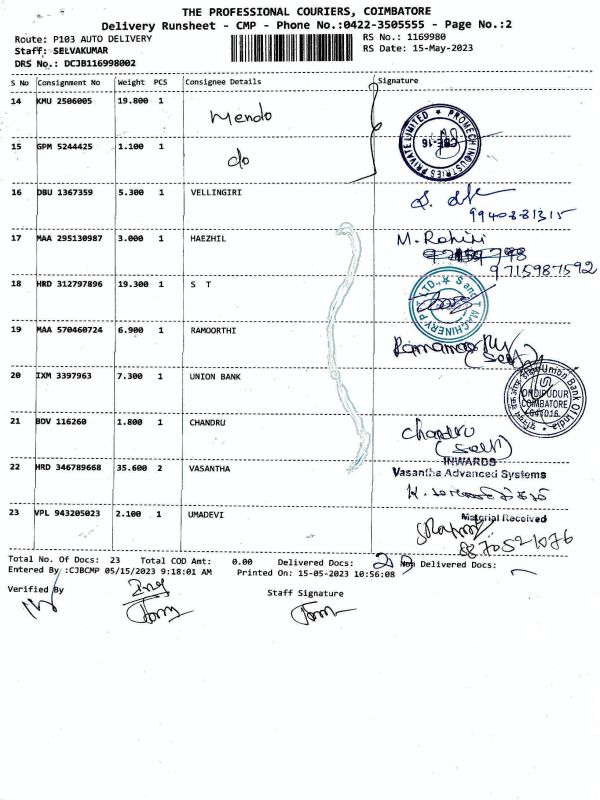 THE PROFESSIONAL COURIERS, COIMBATORE
Delivery Runsheet - CMP - Phone No.:0422-3505555 - Page No.:2
Route: P103 AUTO DELIVERY
RS No.: 1169980
Staff: SELVAKUMAR
RS Date: 15-May-2023
DRS No.: DCJB116998002
S No Consignment No Weight PCS Consignee Details Signature
14 KMU 2506005 19.800 1 Mendo
PROMECH INDUSTRIES PRIVATE LIMITED
CBE-16
15 GPM 5244425 1.100 1 do
16 DBU 1367359 5.300 1 VELLINGIRI
17 MAA 295130987 3.000 1 HAEZHIL M. Rohini
9715987592
18 HRD 312797896 19.300 1 S T
S and T MACHINERY P LTD.,
19 MAA 570460724 6.900 1 RAMOORTHI
(Self)
20 IXM 3397963 7.300 1 UNION BANK
Union Bank Of India
ONDIPUDUR
COIMBATORE
641016
21 BDV 116260 1.800 1 CHANDRU Chandru
(Self)
INWARDS
22 HRD 346789668 35.600 2 VASANTHA Vasantha Advanced Systems
Material Received
23 VPL 943205023 2.100 1 UMADEVI
8870521076
Total No. Of Docs: 23 Total COD Amt: 0.00 Delivered Docs: 23 Non Delivered Docs:
Entered By :CJBCMP 05/15/2023 9:18:01 AM Printed On: 15-05-2023 10:56:08
Verified By
Staff Signature